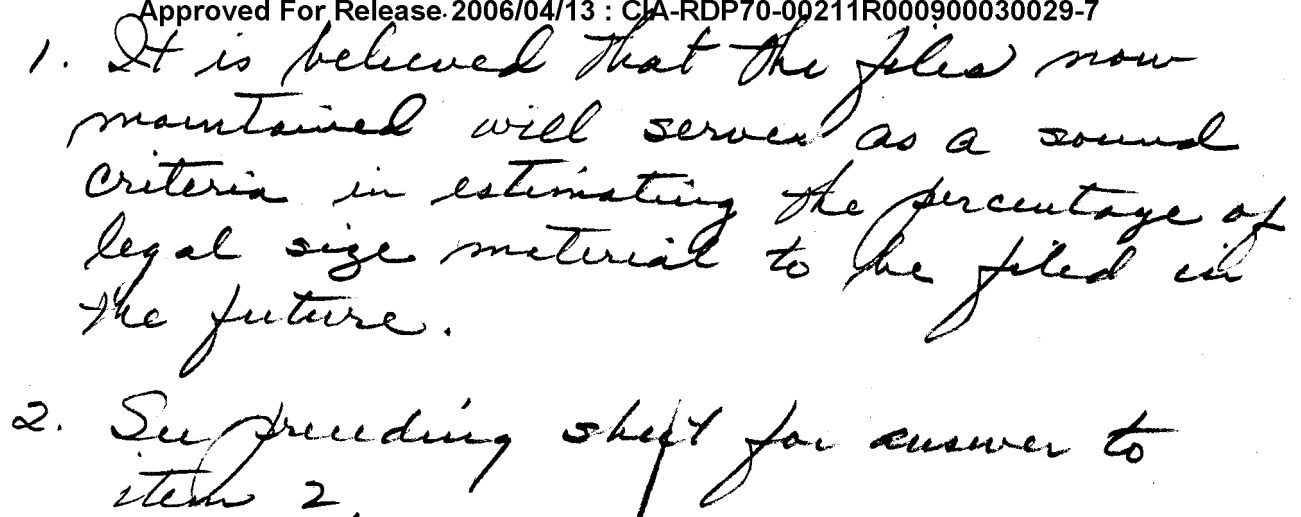 Approved For Release 2006/04/13 : CIA-RDP70-00211R000900030029-7
1. It is believed that the files now
maintained will serve as a sound
criteria in estimating the percentage of
legal size material to be filed in
the future.
2. See preceding sheet for answer to
item 2.